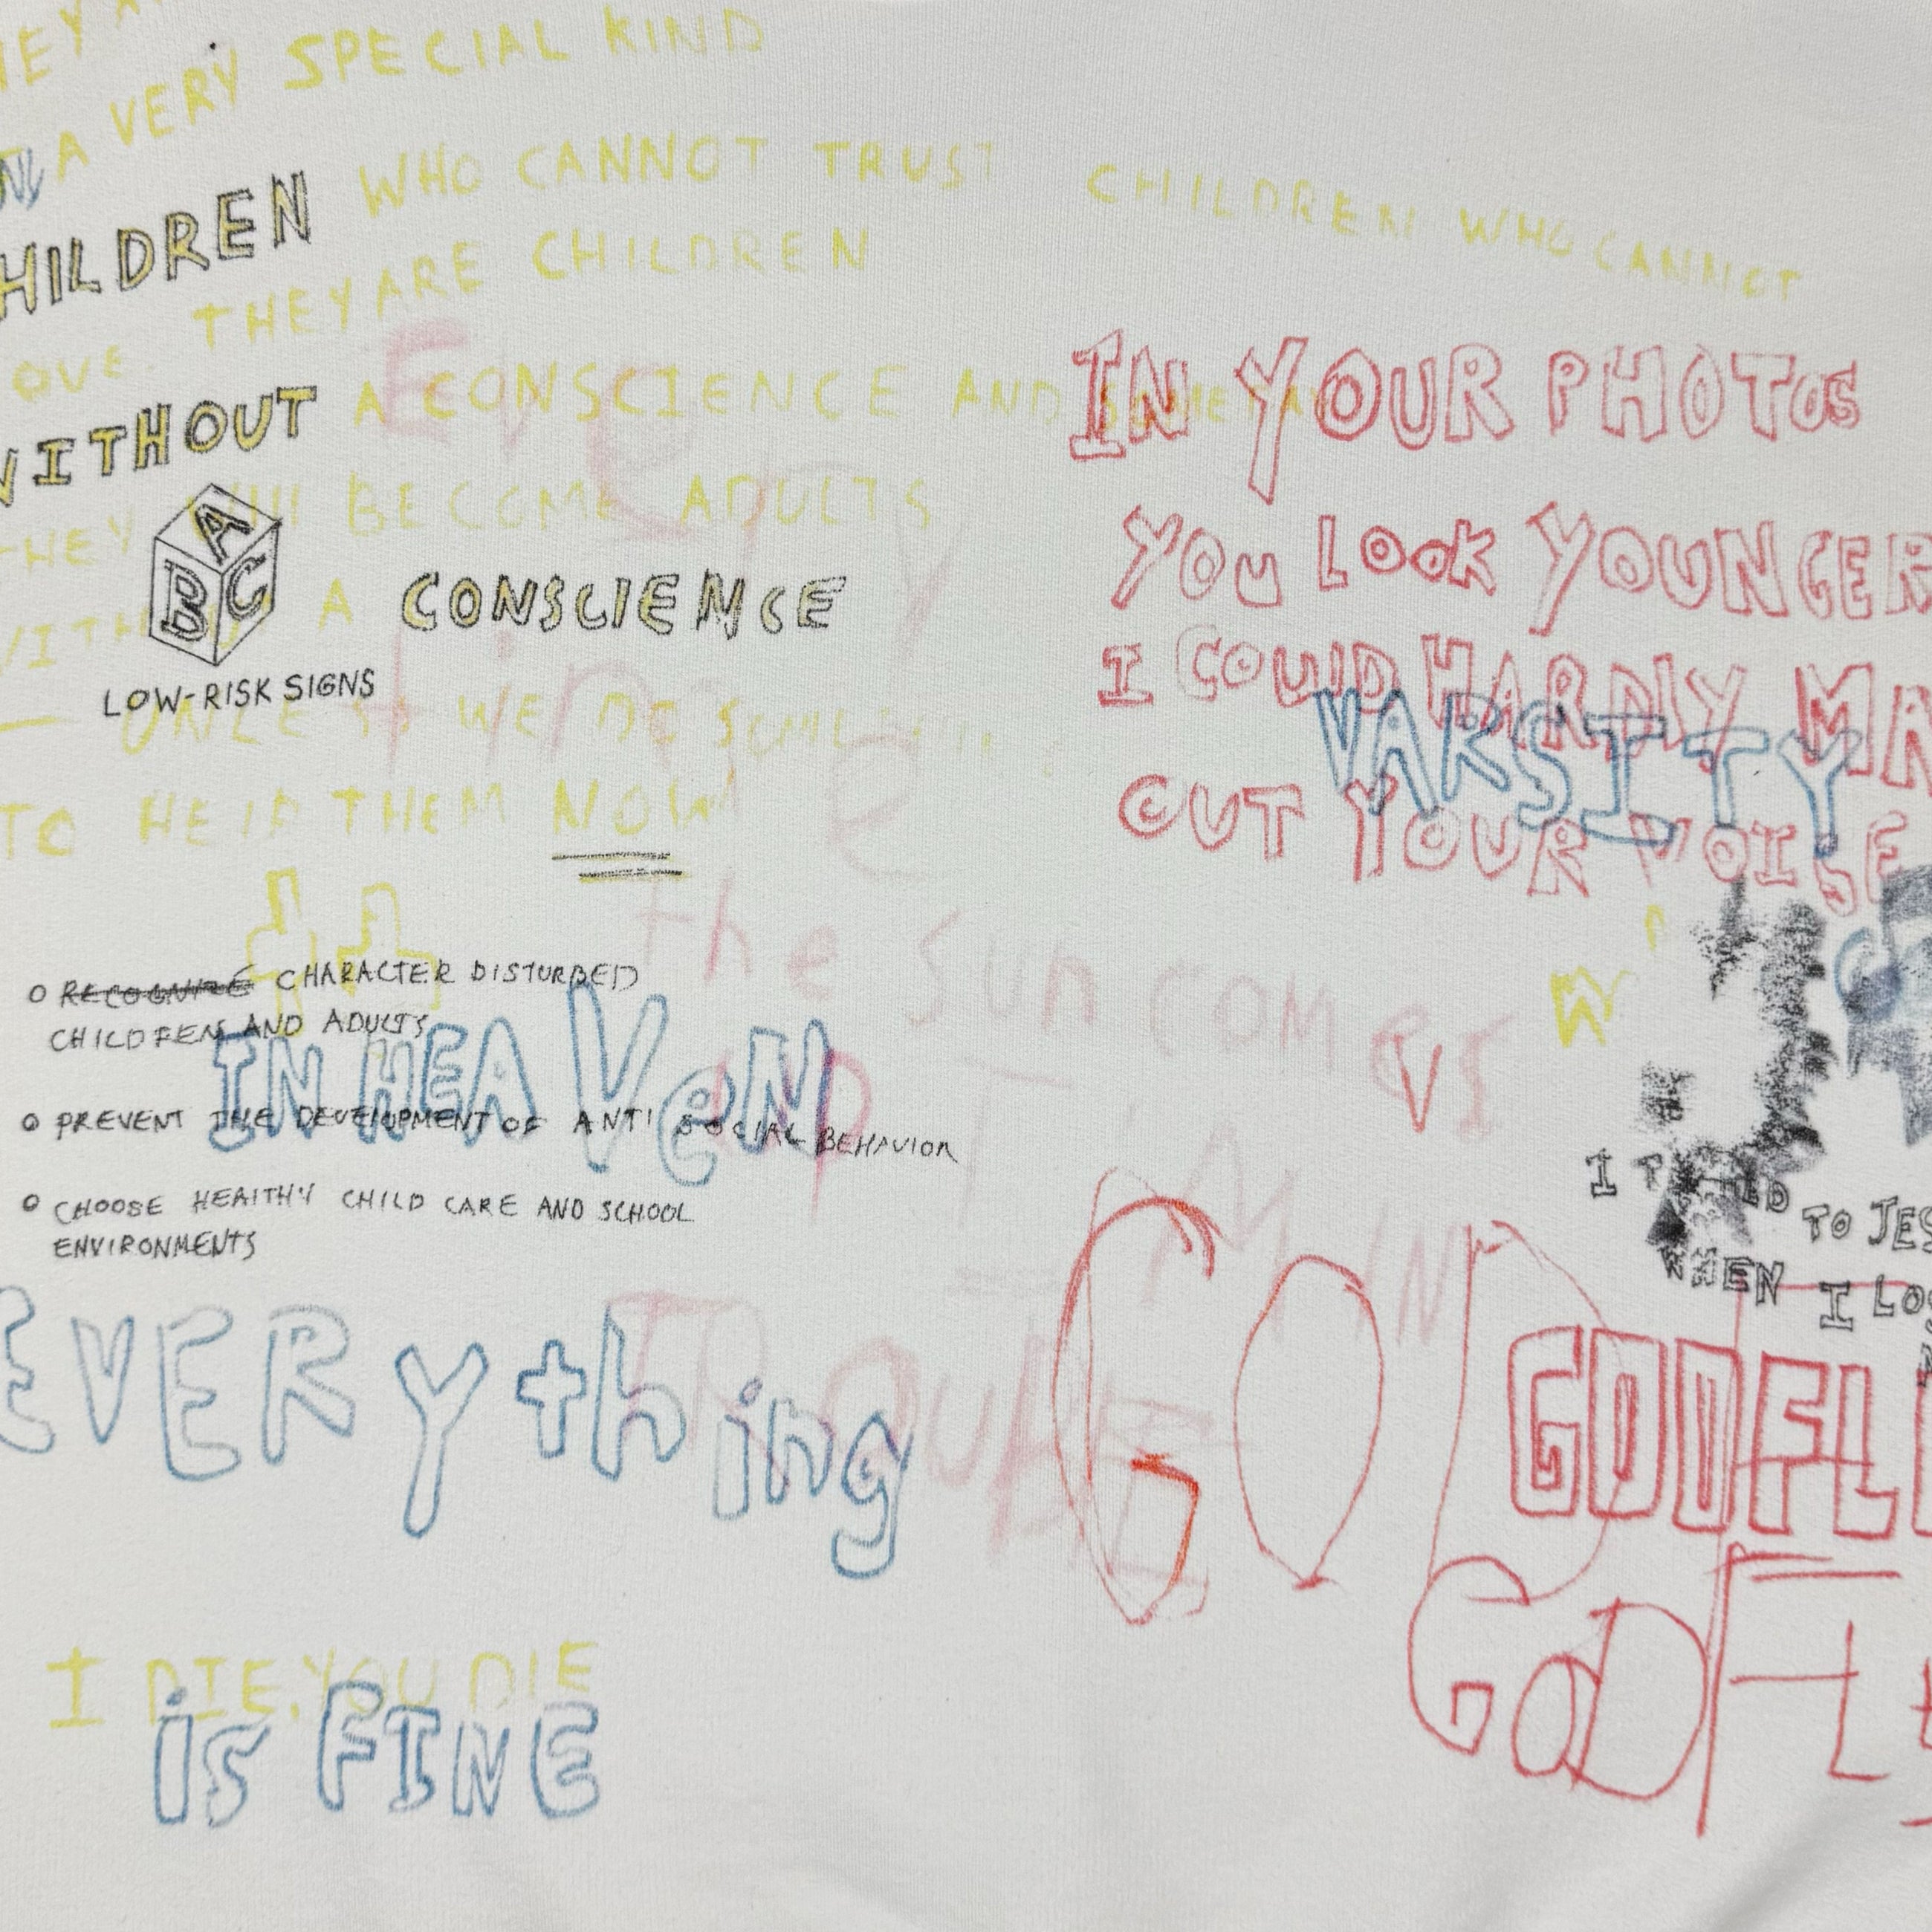 A VERY SPECIAL KIND
HILDREN WHO CANNOT TRUST
CHILDREN WHO CANNOT
OVE. THEY ARE CHILDREN
WITHOUT A CONSCIENCE AND
THEY WILL BECOME ADULTS
A CONSCIENCE
ABC
LOW-RISK SIGNS
UNLESS WE DO
TO HELP THEM NOW
Every time
the sun comes
UP I
M IN
TROUBLE
RECOGNIZE CHARACTER DISTURBED
CHILDREN AND ADULTS
PREVENT THE DEVELOPMENT OF ANTI SOCIAL BEHAVIOR
CHOOSE HEALTHY CHILD CARE AND SCHOOL
ENVIRONMENTS
IN HEAVeN
EVERything
I DIE, YOU DIE
is FINE
IN YOUR PHOTOS
YOU LOOK YOUNGER
I COULD HARDLY MA
VARSITY
OUT YOUR VOICE
V
W
TO JES
WHEN I LOO
GOD
GODFL
GoDFL